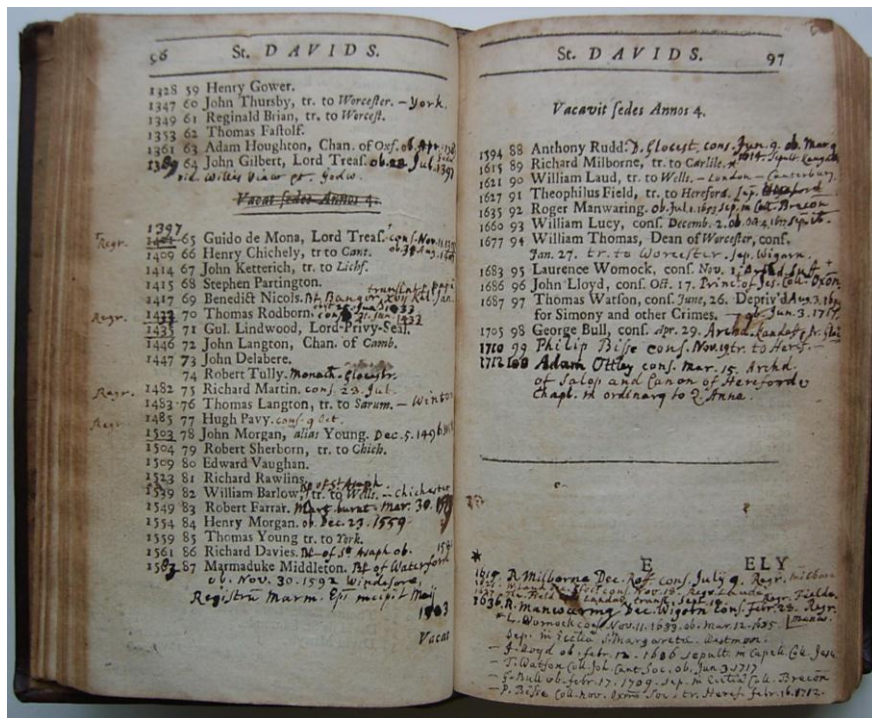 96
St. DAVIDS.
1328 59 Henry Gower.
1347 60 John Thursby, tr. to Worcester. – York.
1349 61 Reginald Brian, tr. to Worcest.
1353 62 Thomas Fastolf.
1361 63 Adam Houghton, Chan. of Oxf. ob. Apr.
1389 64 John Gilbert, Lord Treas. ob. Jul. 1397
vid. Willis View pt. Godw.
Vacat sedes Annos 4.
1397
Regr. 65 Guido de Mona, Lord Treas. cons. Nov. 11
1409 66 Henry Chichely, tr. to Cant.
1414 67 John Ketterich, tr. to Lichf.
1415 68 Stephen Partington.
1417 69 Benedict Nicols. Bp Bangor
Regr. 1433 70 Thomas Rodborn.
1435 71 Gul. Lindwood, Lord-Privy-Seal.
1446 72 John Langton, Chan. of Camb.
1447 73 John Delabere.
74 Robert Tully. Monach. Glocestr.
Regr. 1482 75 Richard Martin. cons. 23. Jul.
1483 76 Thomas Langton, tr. to Sarum. – Winton
Regr. 1485 77 Hugh Pavy. cons. 9 Oct.
1503 78 John Morgan, alias Young. Dec. 5. 1496
1504 79 Robert Sherborn, tr. to Chich.
1509 80 Edward Vaughan.
1523 81 Richard Rawlins.
Bp of St Asaph
1539 82 William Barlow, tr. to Wells. – Chichester
1549 83 Robert Farrar. Mart. burnt. Mar. 30.
1554 84 Henry Morgan. ob. Dec. 23. 1559
1559 85 Thomas Young tr. to York.
1561 86 Richard Davies. Bp of St Asaph ob. 1581
1582 87 Marmaduke Middleton. Bp of Waterford
ob. Nov. 30. 1592 Windesore,
Registrū Marm. Epi incipit Maij
Vacat
St. DAVIDS.
97
Vacavit sedes Annos 4.
1594 88 Anthony Rudd. D. Glocest. cons. Jun. 9. ob. Mar.
1615 89 Richard Milborne, tr. to Carlile.
1621 90 William Laud, tr. to Wells. – London – Canterbury.
1627 91 Theophilus Field, tr. to Hereford. sep. Hereford
1635 92 Roger Manwaring. ob. Jul. 1. 1653 sep. in Coll. Brecon
1660 93 William Lucy, cons. Decemb. 2. ob. Oct. 4. 1677
1677 94 William Thomas, Dean of Worcester, cons.
Jan. 27. tr. to Worcester. sep. Wigorn.
1683 95 Laurence Womock, cons. Nov. 1. Archd. Suff +
1686 96 John Lloyd, cons. Oct. 17. Princ. of Jes. Coll. Oxon
1687 97 Thomas Watson, cons. June, 26. Depriv'd Aug. 3.
for Simony and other Crimes. – ob. Jun. 3. 1717.
1705 98 George Bull, cons. Apr. 29. Archd. Landaff
1710 99 Philip Bisse cons. Nov. 19 tr. to Heref. –
1712 100 Adam Ottley cons. Mar. 15. Archd.
of Salop and Canon of Hereford
Chapl. in ordinary to Q. Anne.
*
E ELY
1615 R. Milborne Dec. Roff cons. July 9. Regr. Milborn
1636. R. Manwaring Dec. Wigorn Cons. Febr. 28. Regr.
+ L. Womock cons. Nov. 11. 1683. ob. Mar. 12. 1685.
Sep. in Ecclia S. Margareta Westmon.
– J. Lloyd ob. febr. 12. 1686 sepult. in Capell. Coll. Jesu
– T. Watson Coll. Joh. Cant. Soc. ob. Jun 3. 1717
– G. Bull ob. febr. 17. 1709. sep. in Ecclia Coll. Brecon
– P. Bisse Coll. nov. Oxon Soc. tr. Heref. febr. 16. 1712.